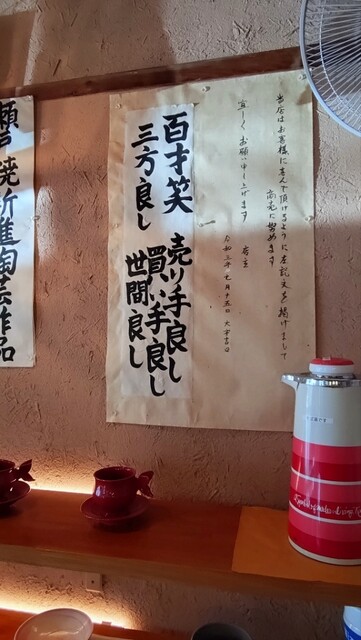 当店はお客様に喜んで頂けるように左記文を掲げまして
商売に努めます
宜しくお願い申し上げます
店主
令和三年七月十五日 大安吉日
百才笑
三方良し
売り手良し
買い手良し
世間良し
瀬戸焼新進陶芸作品